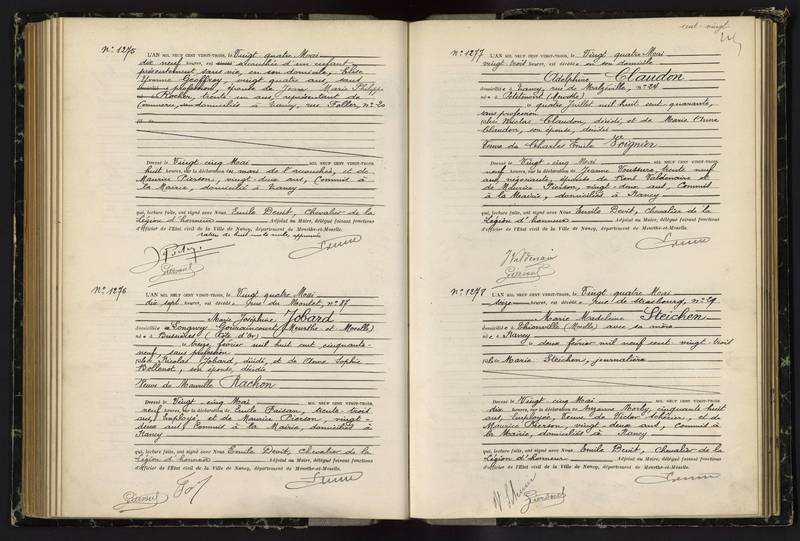 N° 1275
L'AN MIL NEUF CENT VINGT-TROIS, le Vingt quatre Mai
dix neuf heures, est accouchée d'un enfant
présentement sans vie, en son domicile,
Yvonne Geoffroy, vingt quatre ans, sans
profession, épouse de Jean, Marie Philippe
Rocher, trente un ans, représentant de
Commerce, domiciliés à Nancy, rue Foller, n° 20
Dressé le Vingt cinq Mai MIL NEUF CENT VINGT-TROIS,
huit heures, sur la déclaration du mari de l'accouchée, et de
Maurice Pierson, vingt-deux ans, Commis à
la Mairie, domicilié à Nancy
qui, lecture faite, ont signé avec Nous Emile Devit, Chevalier de la
Légion d'honneur Adjoint au Maire, délégué faisant fonctions
d'Officier de l'Etat civil de la Ville de Nancy, département de Meurthe-et-Moselle.
rature de huit mots nuls, approuvée
N° 1276
L'AN MIL NEUF CENT VINGT-TROIS, le Vingt quatre Mai
dix sept heures, est décédée rue du Montet, n° 37
Marie Joséphine Jobard
domiciliée à Longwy Gouraincourt (Meurthe et Moselle)
née à Busserotte (Côte d'Or)
le treize février mil huit cent cinquante-
neuf, sans profession
fille Nicolas Jobard, décédé, et de Anne Sophie
Bollenot, son épouse, décédée
Veuve de Mamille Rachon
Dressé le Vingt cinq Mai MIL NEUF CENT VINGT-TROIS,
neuf heures, sur la déclaration de Emile Faisan, trente-trois
ans, Employé et de Maurice Pierson, vingt-
deux ans, Commis à la Mairie, domiciliés à
Nancy
qui, lecture faite, ont signé avec Nous Emile Devit, Chevalier de la
Légion d'honneur Adjoint au Maire, délégué faisant fonctions
d'Officier de l'Etat civil de la Ville de Nancy, département de Meurthe-et-Moselle.
Pierson
cent-vingt
N° 1277
L'AN MIL NEUF CENT VINGT-TROIS, le Vingt quatre Mai
vingt trois heures, est décédée en son domicile
Adelphine Claudon
domiciliée à Nancy, rue de Malzéville, n° 24
née à Petitmont (Meurthe)
le quatre Juillet mil huit cent quarante,
sans profession
fille Nicolas Claudon, décédé, et de Marie Anne
Claudon, son épouse, décédée
Veuve de Charles Emile Voignier
Dressé le Vingt cinq Mai MIL NEUF CENT VINGT-TROIS,
neuf heures, sur la déclaration de Jeanne Toussure, trente neuf
ans, négociante, épouse de René Valdenaire et
de Maurice Pierson, vingt-deux ans, Commis
à la Mairie, domiciliés à Nancy
qui, lecture faite, ont signé avec Nous Emile Devit, Chevalier de la
Légion d'honneur Adjoint au Maire, délégué faisant fonctions
d'Officier de l'Etat civil de la Ville de Nancy, département de Meurthe-et-Moselle.
J Valdenaire
Pierson
N° 1278
L'AN MIL NEUF CENT VINGT-TROIS, le Vingt quatre Mai
seize heures, est décédée rue de Strasbourg, n° 29
Marie Madeleine Steichen
domiciliée à Thionville (Moselle) avec sa mère
née à Nancy
le deux février mil neuf cent vingt-trois
fille Marie Steichen, journalière
Dressé le Vingt cinq Mai MIL NEUF CENT VINGT-TROIS,
dix heures, sur la déclaration de Suzanne Morly, cinquante huit
ans, Employée, Veuve de Victor Schérier, et de
Maurice Pierson, vingt-deux ans, Commis à
la Mairie, domiciliés à Nancy
qui, lecture faite, ont signé avec Nous Emile Devit, Chevalier de la
Légion d'honneur Adjoint au Maire, délégué faisant fonctions
d'Officier de l'Etat civil de la Ville de Nancy, département de Meurthe-et-Moselle.
Pierson